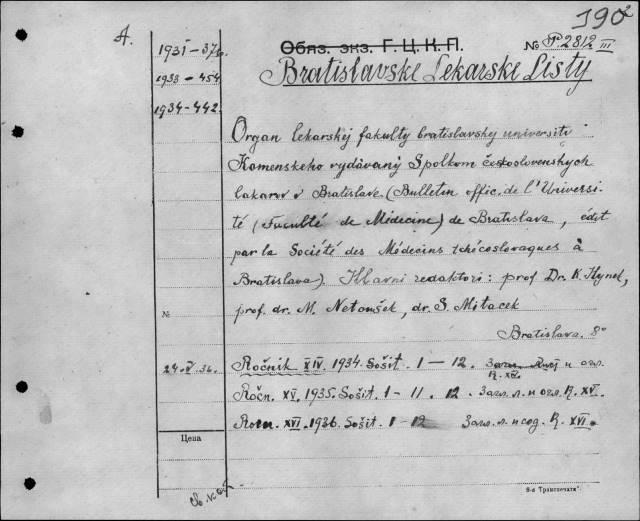 190²
A.
1931-376.
1933-454
1934-442.
Обяз. экз. Г.Ц.К.П.
№ P2812 III
Bratislavske Lekarske Listy
Organ lekarskej fakulty bratislavskej universiti
Komenskeho vydávaný Spolkom československých
lakarov v Bratislave (Bulletin offic. de l'Universi-
té (Faculté de Médecine) de Bratislava, édit
par la Société des Médecins tchécoslovaques à
Bratislava). Hlavni redaktori: prof Dr. K. Hynek,
№
prof. dr. M. Netoušek, dr. S. Mitacek
Bratislava. 8°
24 V 36.
Ročnik XIV. 1934. Sošit. 1-12. Загл. и огл.
R. XIV.
Ročn. XV. 1935. Sošit 1-11. 12. Загл. л. и огл. R. XV.
Rotn. XVI. 1936. Sošit. 1-12 Загл. л. и сод. R. XVI.
Цена
8-я Транспечати"